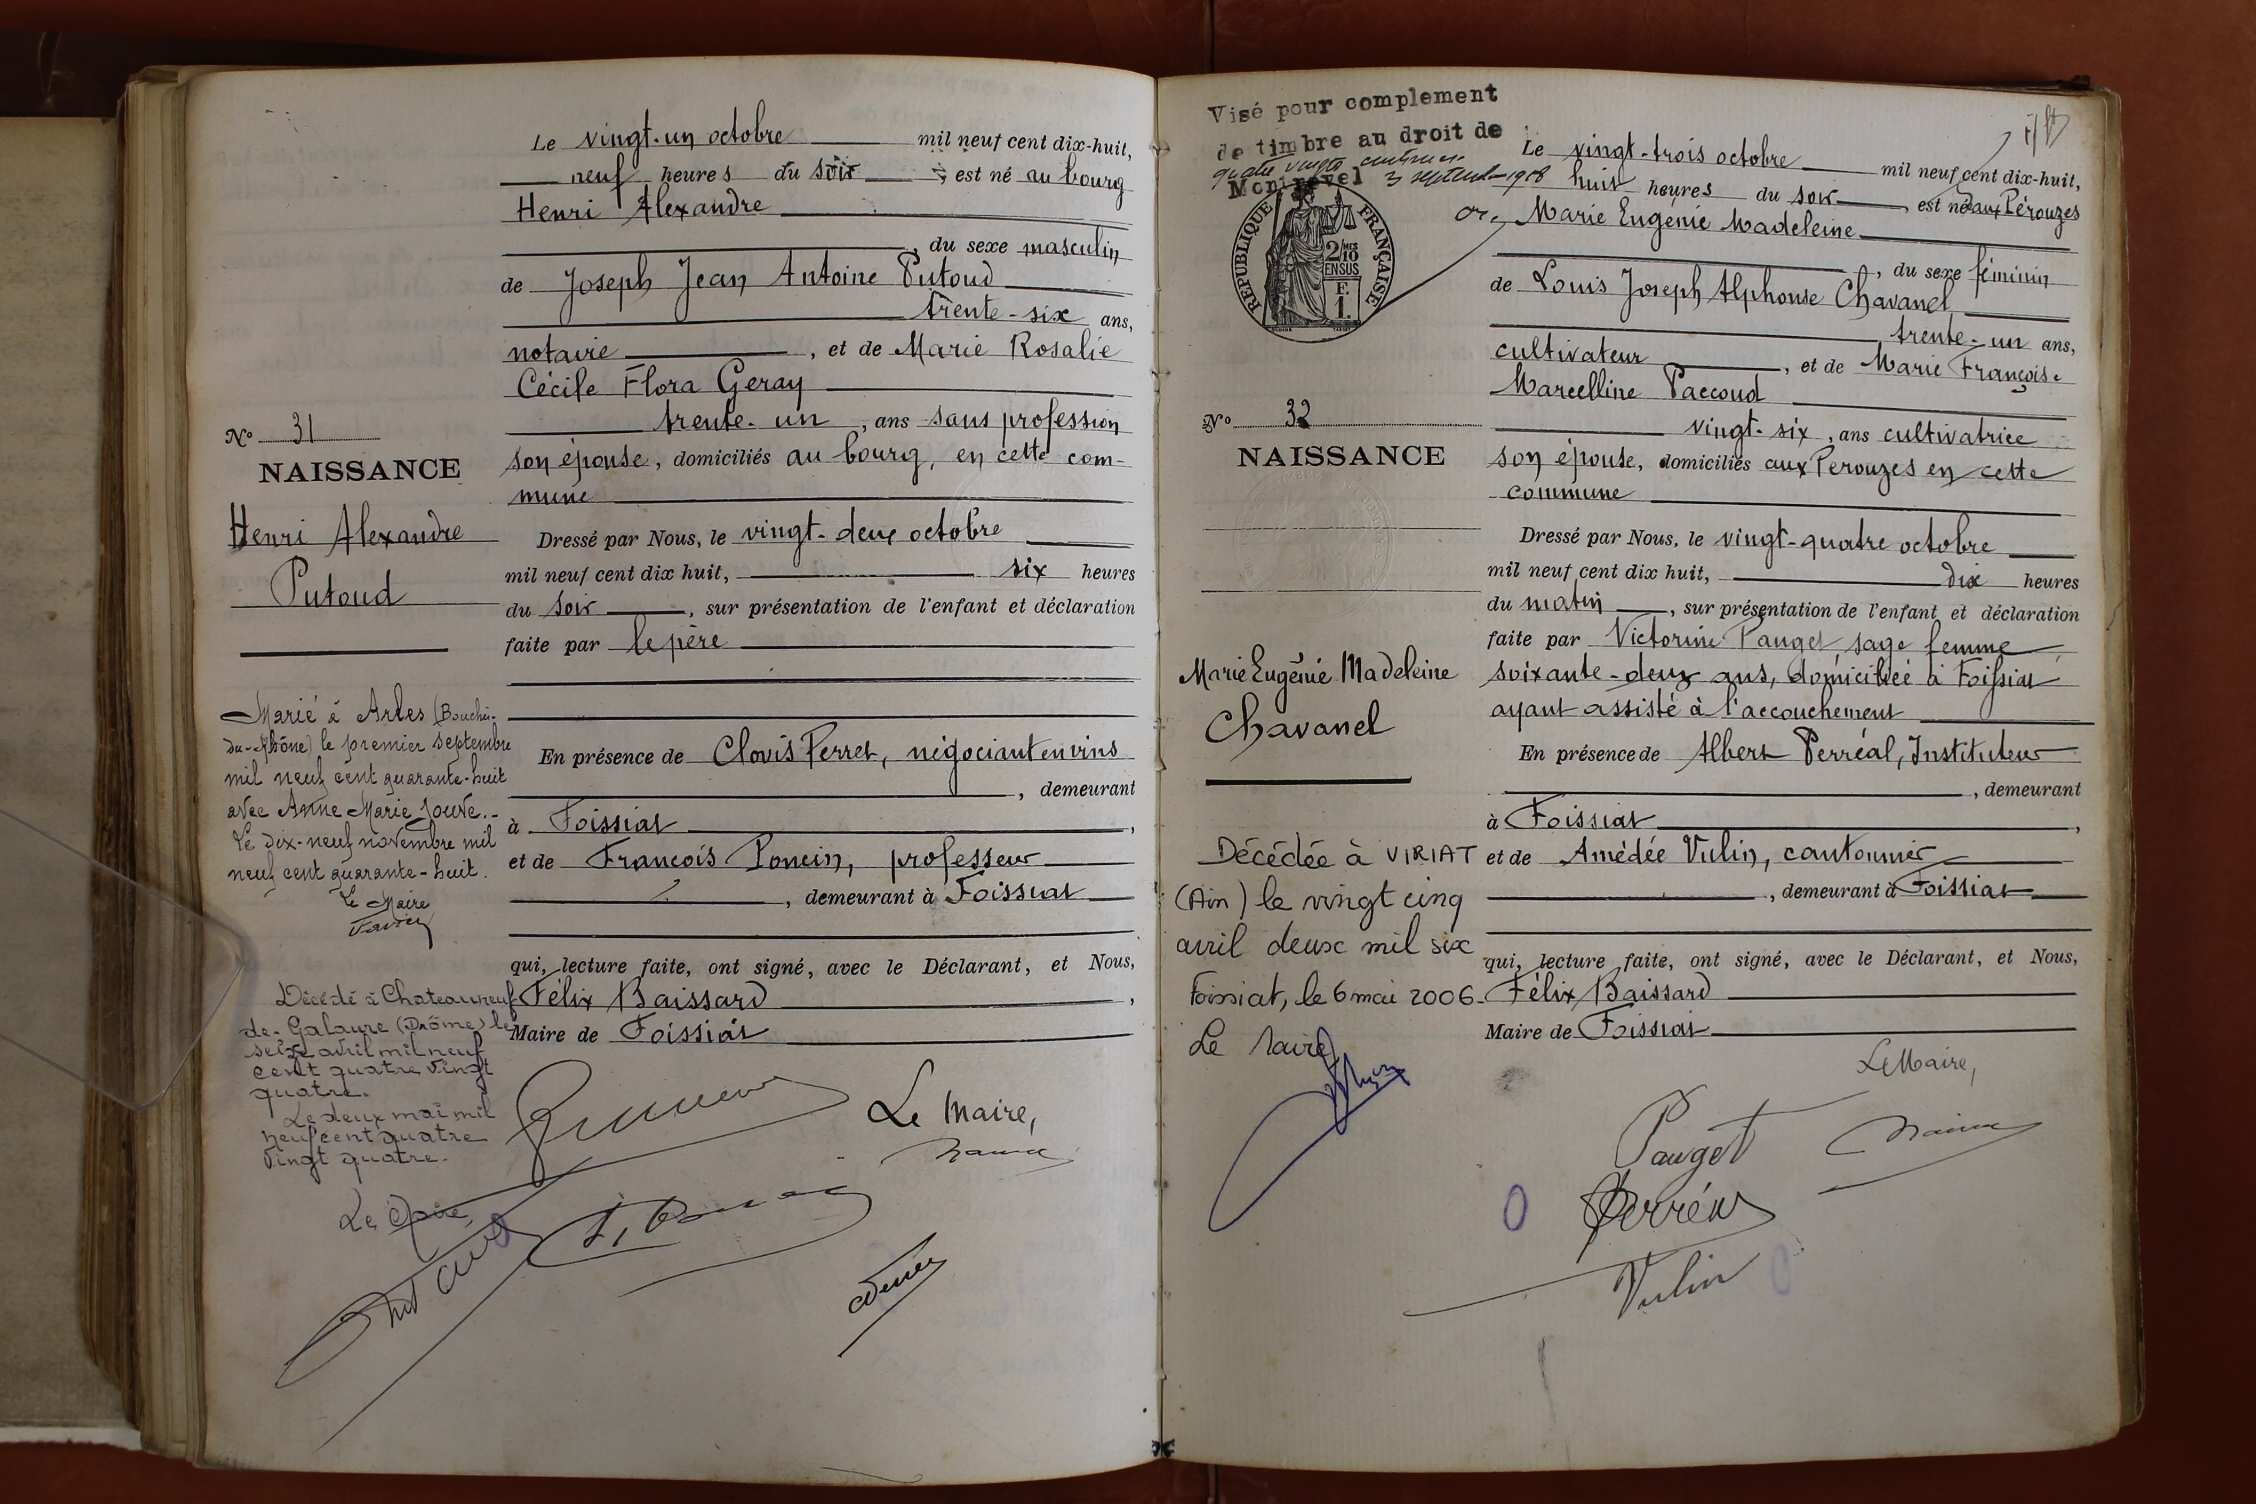 Le vingt-un octobre mil neuf cent dix-huit,
neuf heures du soir, est né au bourg
Henri Alexandre
, du sexe masculin
de Joseph Jean Antoine Putoud
trente-six ans,
notaire, et de Marie Rosalie
Cécile Flora Geray
trente-un, ans sans profession
son épouse, domiciliés au bourg, en cette com-
mune
Dressé par Nous, le vingt-deux octobre
mil neuf cent dix huit, six heures
du soir, sur présentation de l'enfant et déclaration
faite par le père
En présence de Clovis Perret, négociant en vins
, demeurant
à Foissiat,
et de François Poncin, professeur
, demeurant à Foissiat
qui, lecture faite, ont signé, avec le Déclarant, et Nous,
Félix Baissard,
Maire de Foissiat
Le Maire,
No 31
NAISSANCE
Henri Alexandre
Putoud
Marié à Arles (Bouches-
du-Rhône) le premier septembre
mil neuf cent quarante-huit
avec Anne Marie Jouve.-
Le dix-neuf novembre mil
neuf cent quarante-huit.
Le Maire
Décédé à Chateauneuf
de-Galaure (Drôme) le
seize avril mil neuf
cent quatre vingt
quatre.
Le deux mai mil
neuf cent quatre
vingt quatre.
Le Maire,
Visé pour complement
de timbre au droit de
quatre vingts centimes
Montrevel 3 septembre 1908
RÉPUBLIQUE FRANÇAISE
2/10 EN SUS
F. 1.
Le vingt-trois octobre mil neuf cent dix-huit,
huit heures du soir, est née aux Pérouzes
Marie Eugénie Madeleine
, du sexe féminin
de Louis Joseph Alphonse Chavanel
trente-un ans,
cultivateur, et de Marie Françoise
Marcelline Paccoud
vingt-six, ans cultivatrice
son épouse, domiciliés aux Perouzes en cette
commune
Dressé par Nous, le vingt-quatre octobre
mil neuf cent dix huit, dix heures
du matin, sur présentation de l'enfant et déclaration
faite par Victorine Pauget, sage femme,
soixante-deux ans, domiciliée à Foissiat
ayant assisté à l'accouchement
En présence de Albert Perréal, Instituteur
, demeurant
à Foissiat,
et de Amédée Vulin, cantonnier
, demeurant à Foissiat
qui, lecture faite, ont signé, avec le Déclarant, et Nous,
Félix Baissard
Maire de Foissiat
Le Maire,
Pauget
Perréal
Vulin
No 32
NAISSANCE
Marie Eugénie Madeleine
Chavanel
Décédée à VIRIAT
(Ain) le vingt cinq
avril deux mil six
Foissiat, le 6 mai 2006.
Le Maire